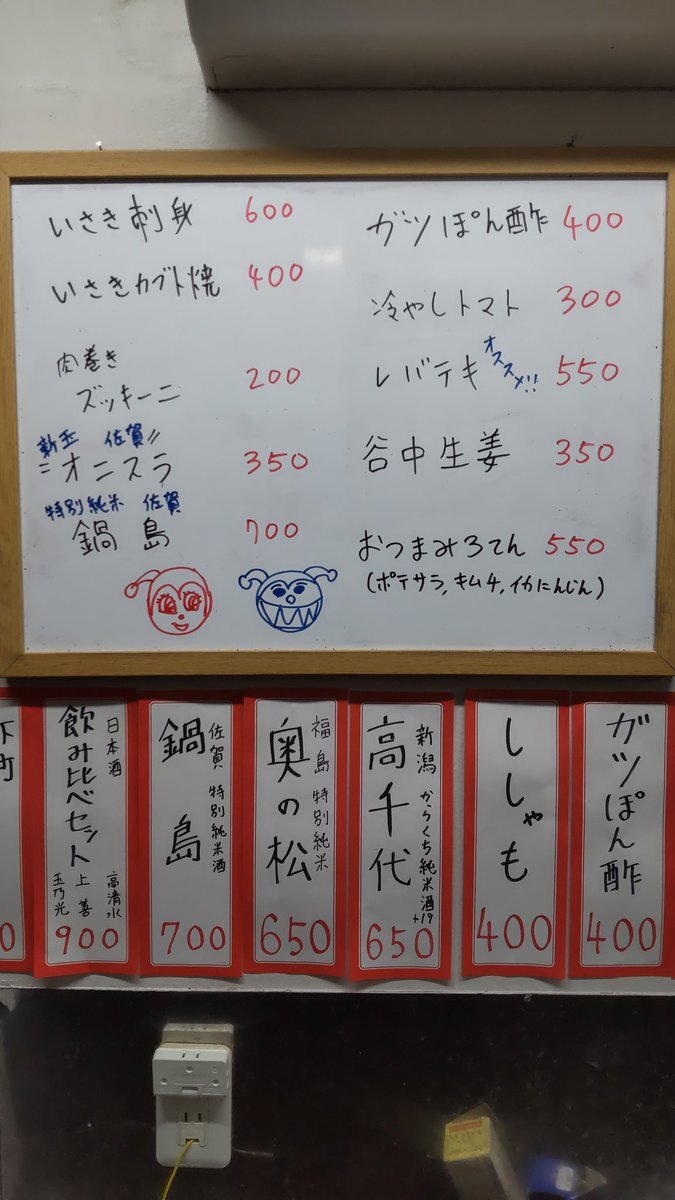 いさき刺身 600
いさきカブト焼 400
肉巻き
ズッキーニ 200
新玉 佐賀〃
オニスラ 350
特別純米 佐賀
鍋島 700
ガツぽん酢 400
冷やしトマト 300
レバテキ オススメ!! 550
谷中生姜 350
おつまみ3てん 550
(ポテサラ, キムチ, イカにんじん)
ガツぽん酢
400
ししゃも
400
新潟 からくち純米酒 +19
高千代
650
福島 特別純米
奥の松
650
佐賀 特別純米酒
鍋島
700
日本酒
飲み比べセット
高清水
上善
玉乃光
900
下町
0